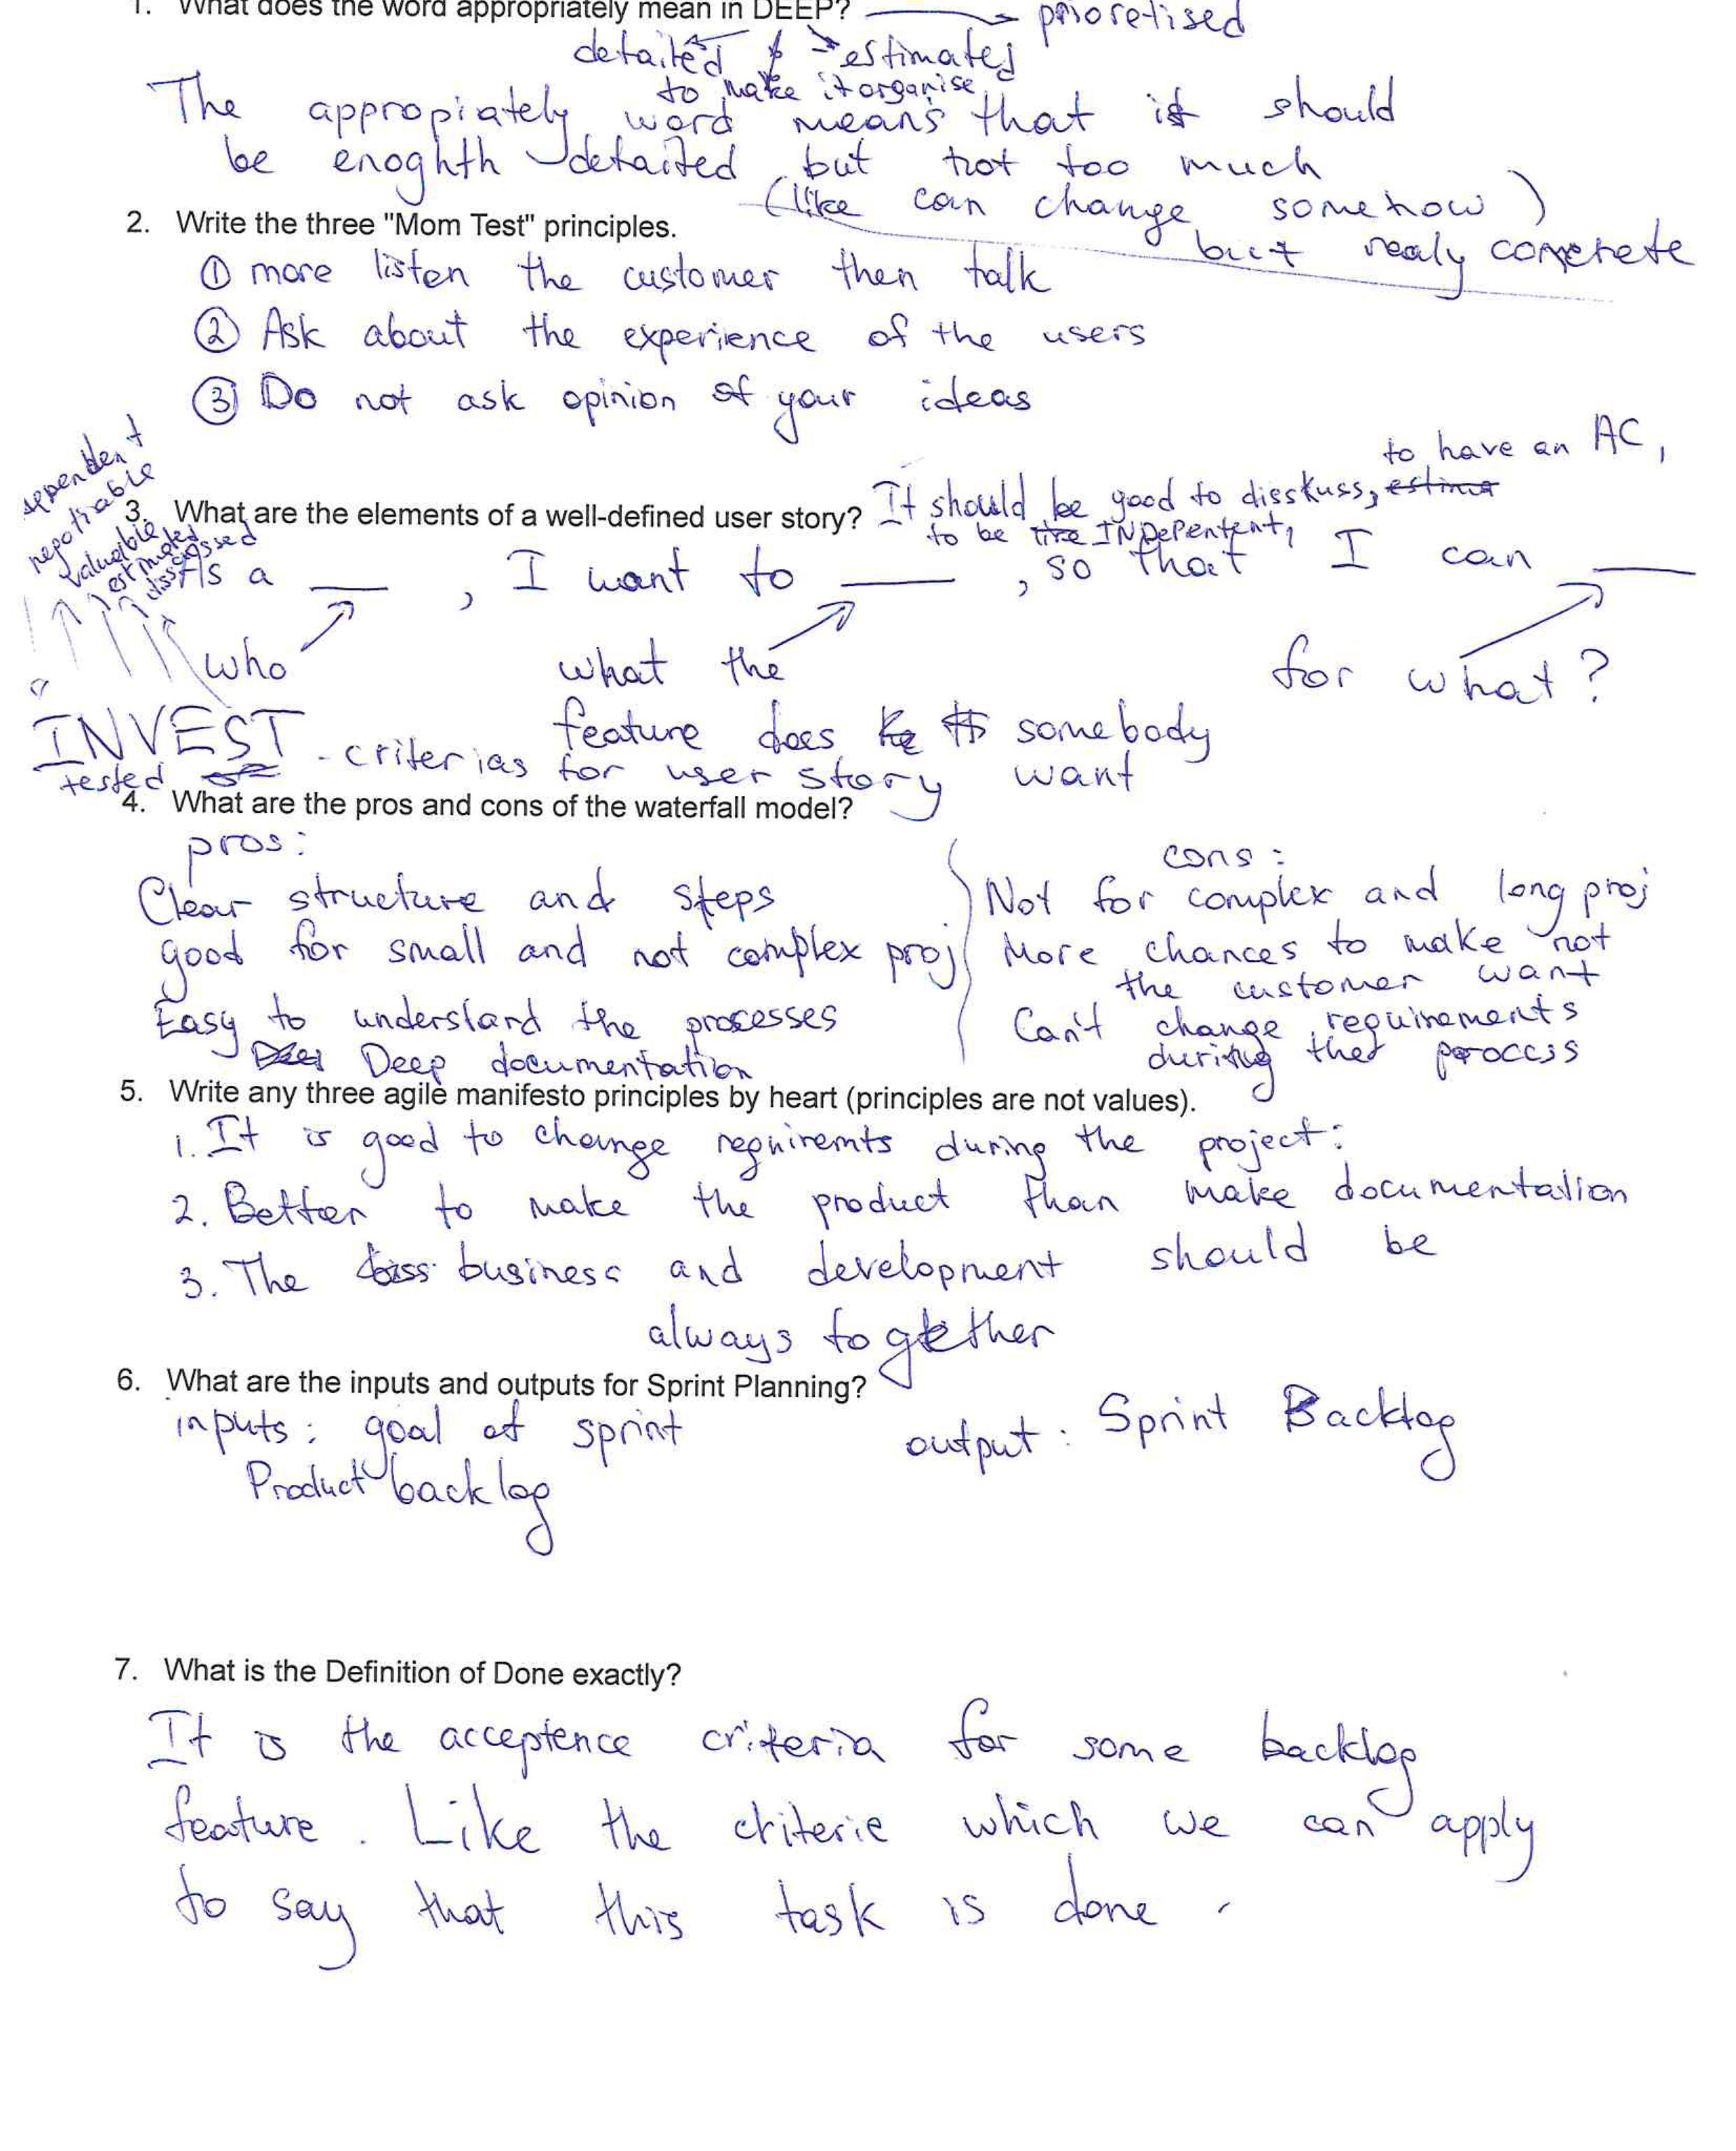 1. What does the word appropriately mean in DEEP? prioretised
detailed estimated
to make it organise
The appropiately word means that it should
be enoghth detailed but not too much
(like can change somehow)
but realy concrete
2. Write the three "Mom Test" principles.
① more listen the customer then talk
② Ask about the experience of the users
③ Do not ask opinion of your ideas
to have an AC,
3. What are the elements of a well-defined user story? It should be good to disskuss,
to be INDePentent,
As a ___, I want to ___, so that I can ___
dependent
negotiable
valuable
estimated
who
what the
for what?
feature does somebody
want
INVEST - criterias for user story
tested
4. What are the pros and cons of the waterfall model?
pros:
Clear structure and steps
good for small and not complex proj
Easy to understand the processes
Deep documentation
cons:
Not for complex and long proj
More chances to make not
the customer want
Can't change requirements
during the process
5. Write any three agile manifesto principles by heart (principles are not values).
1. It is good to change requiremts during the project:
2. Better to make the product than make documentation
3. The business and development should be
always together
6. What are the inputs and outputs for Sprint Planning?
inputs: goal of sprint
Product backlog
output: Sprint Backlog
7. What is the Definition of Done exactly?
It is the acceptence criteria for some backlog
feature. Like the criterie which we can apply
to say that this task is done.